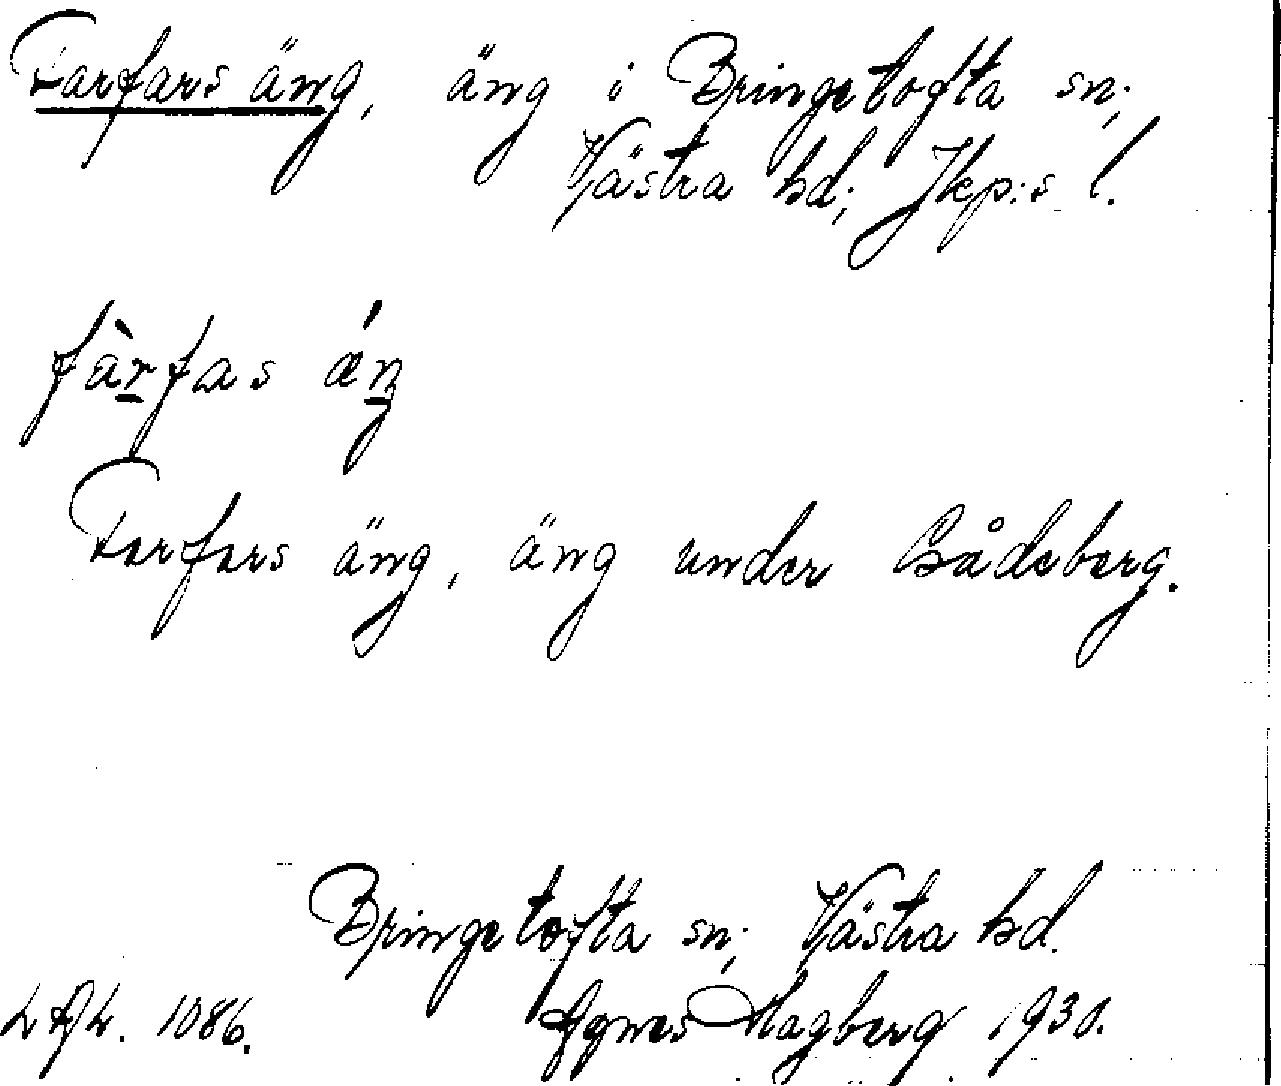 Farfars äng, äng i Bringetofta sn;
Västra hd; Jkp:s l.
fàrfas áŋ
Farfars äng, äng under Bådeberg.
Bringetofta sn; Västra hd.
1086. Agnes Hagberg 1930.